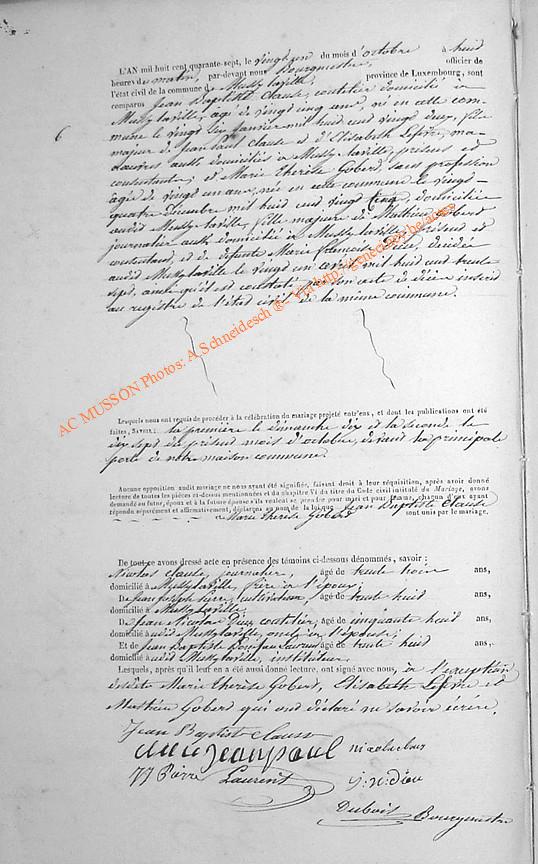 L'AN mil huit cent quarante-sept, le vingt un du mois d'octobre à huit
heures du matin, par-devant nous Bourgmestre, officier de
l'état civil de la commune de Mussy laville, province de Luxembourg, sont
comparus Jean Baptiste Clause, coutelier domicilié à
Mussy laville, agé de vingt cinq ans, né en cette com-
6
mune le vingt six janvier mil huit cent vingt deux, fils
majeur de Jean Paul Clause et d'Elisabeth Lefèvre, ma-
nœuvres audit domiciliés à Mussy laville, présens et
consentants; et Marie Therèse Gobert, sans profession
agée de vingt un ans, née en cette commune le vingt-
quatre décembre mil huit cent vingt cinq, domiciliée
audit Mussy laville, fille majeure de Mathieu Gobert
journalier audit domicilié à Mussy laville, présent et
consentant, et de défunte Marie Françoise décédée
audit Mussy laville le vingt un mil huit cent trente
sept, ainsi qu'il est constaté par son acte de décès inscrit
au registre de l'état civil de la même commune.
AC MUSSON Photos: A. Schneidesch ®- Via http://geneciney.be/actes
Lesquels nous ont requis de procéder à la célébration du mariage projeté entr'eux, et dont les publications ont été
faites, SAVOIR: la première le dimanche dix et la seconde le
dix sept du présent mois d'octobre, devant la principale
porte de notre maison commune.
Aucune opposition audit mariage ne nous ayant été signifiée, faisant droit à leur réquisition, après avoir donné
lecture de toutes les pièces ci-dessus mentionnées et du chapitre VI du titre du Code civil intitulé du Mariage, avons
demandé au futur époux et à la future épouse s'ils veulent se prendre pour mari et pour femme, chacun d'eux ayant
répondu séparément et affirmativement, déclarons au nom de la loi que Jean Baptiste Clause
et Marie Therèse Gobert sont unis par le mariage.
De tout ce avons dressé acte en présence des témoins ci-dessous dénommés, savoir:
Nicolas Clause, journalier, âgé de trente trois ans,
domicilié à Mussy laville, frère à l'époux;
De Jean Joseph Pierre, cultivateur, âgé de trente huit ans,
domicilié à Mussy laville,
De Jean Nicolas Dieu, coutelier, âgé de cinquante huit ans,
domicilié audit Mussy laville, oncle à l'épouse;
Et de Jean Baptiste Laurent âgé de trente huit ans,
domicilié audit Mussy laville, instituteur.
Lesquels, après qu'il leur en a été aussi donné lecture, ont signé avec nous, à l'exception
desdits Marie Therèse Gobert, Elisabeth Lefèvre et
Mathieu Gobert qui ont déclaré ne savoir écrire.
Jean Baptist Clause
Jeanpaul
JJ Pierre Laurent J: N: dieu
Dubois Bourgmestre